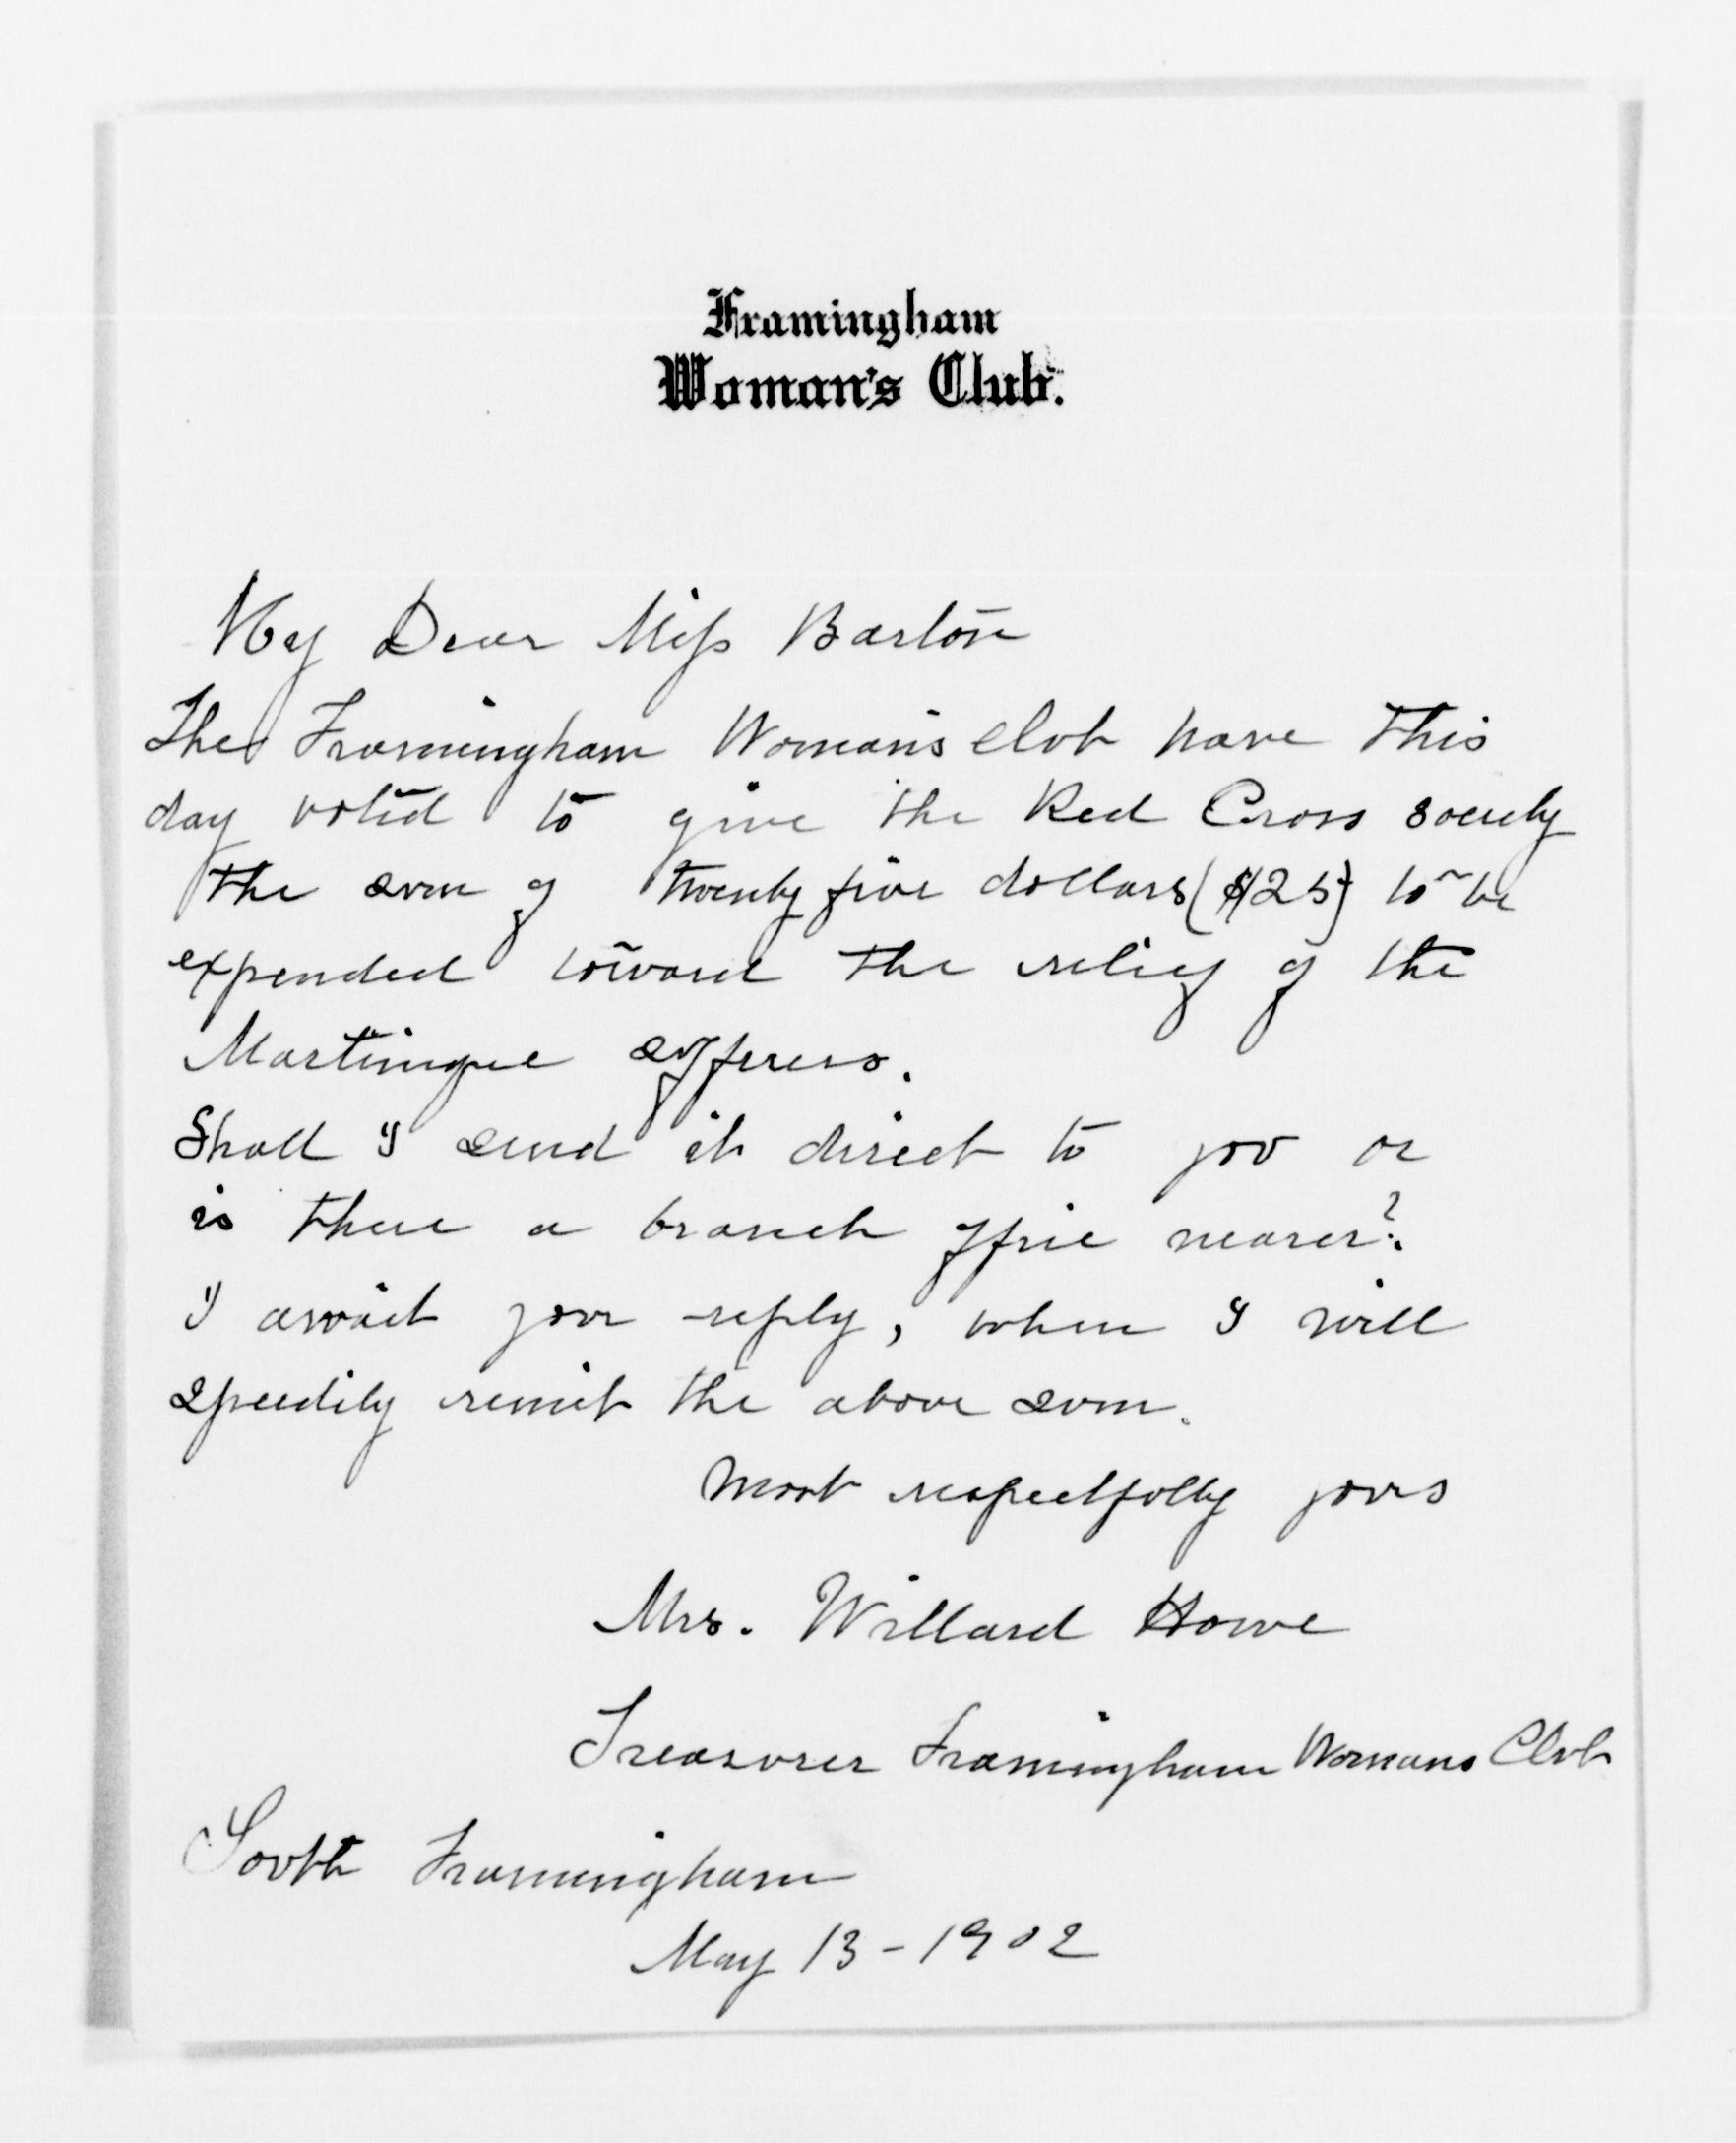 Framingham
Woman's Club.
My Dear Miss Barton
The Framingham Woman's club have this
day voted to give the Red Cross society
the sum of twenty five dollars ($25) to be
expended toward the relief of the
Martinique sufferers.
Shall I send it direct to you or
is there a branch office nearer?
I await your reply, when I will
speedily remit the above sum.
Most respectfully yours
Mrs. Willard Howe
Treasurer Framingham Womans Club
South Framingham
May 13 - 1902